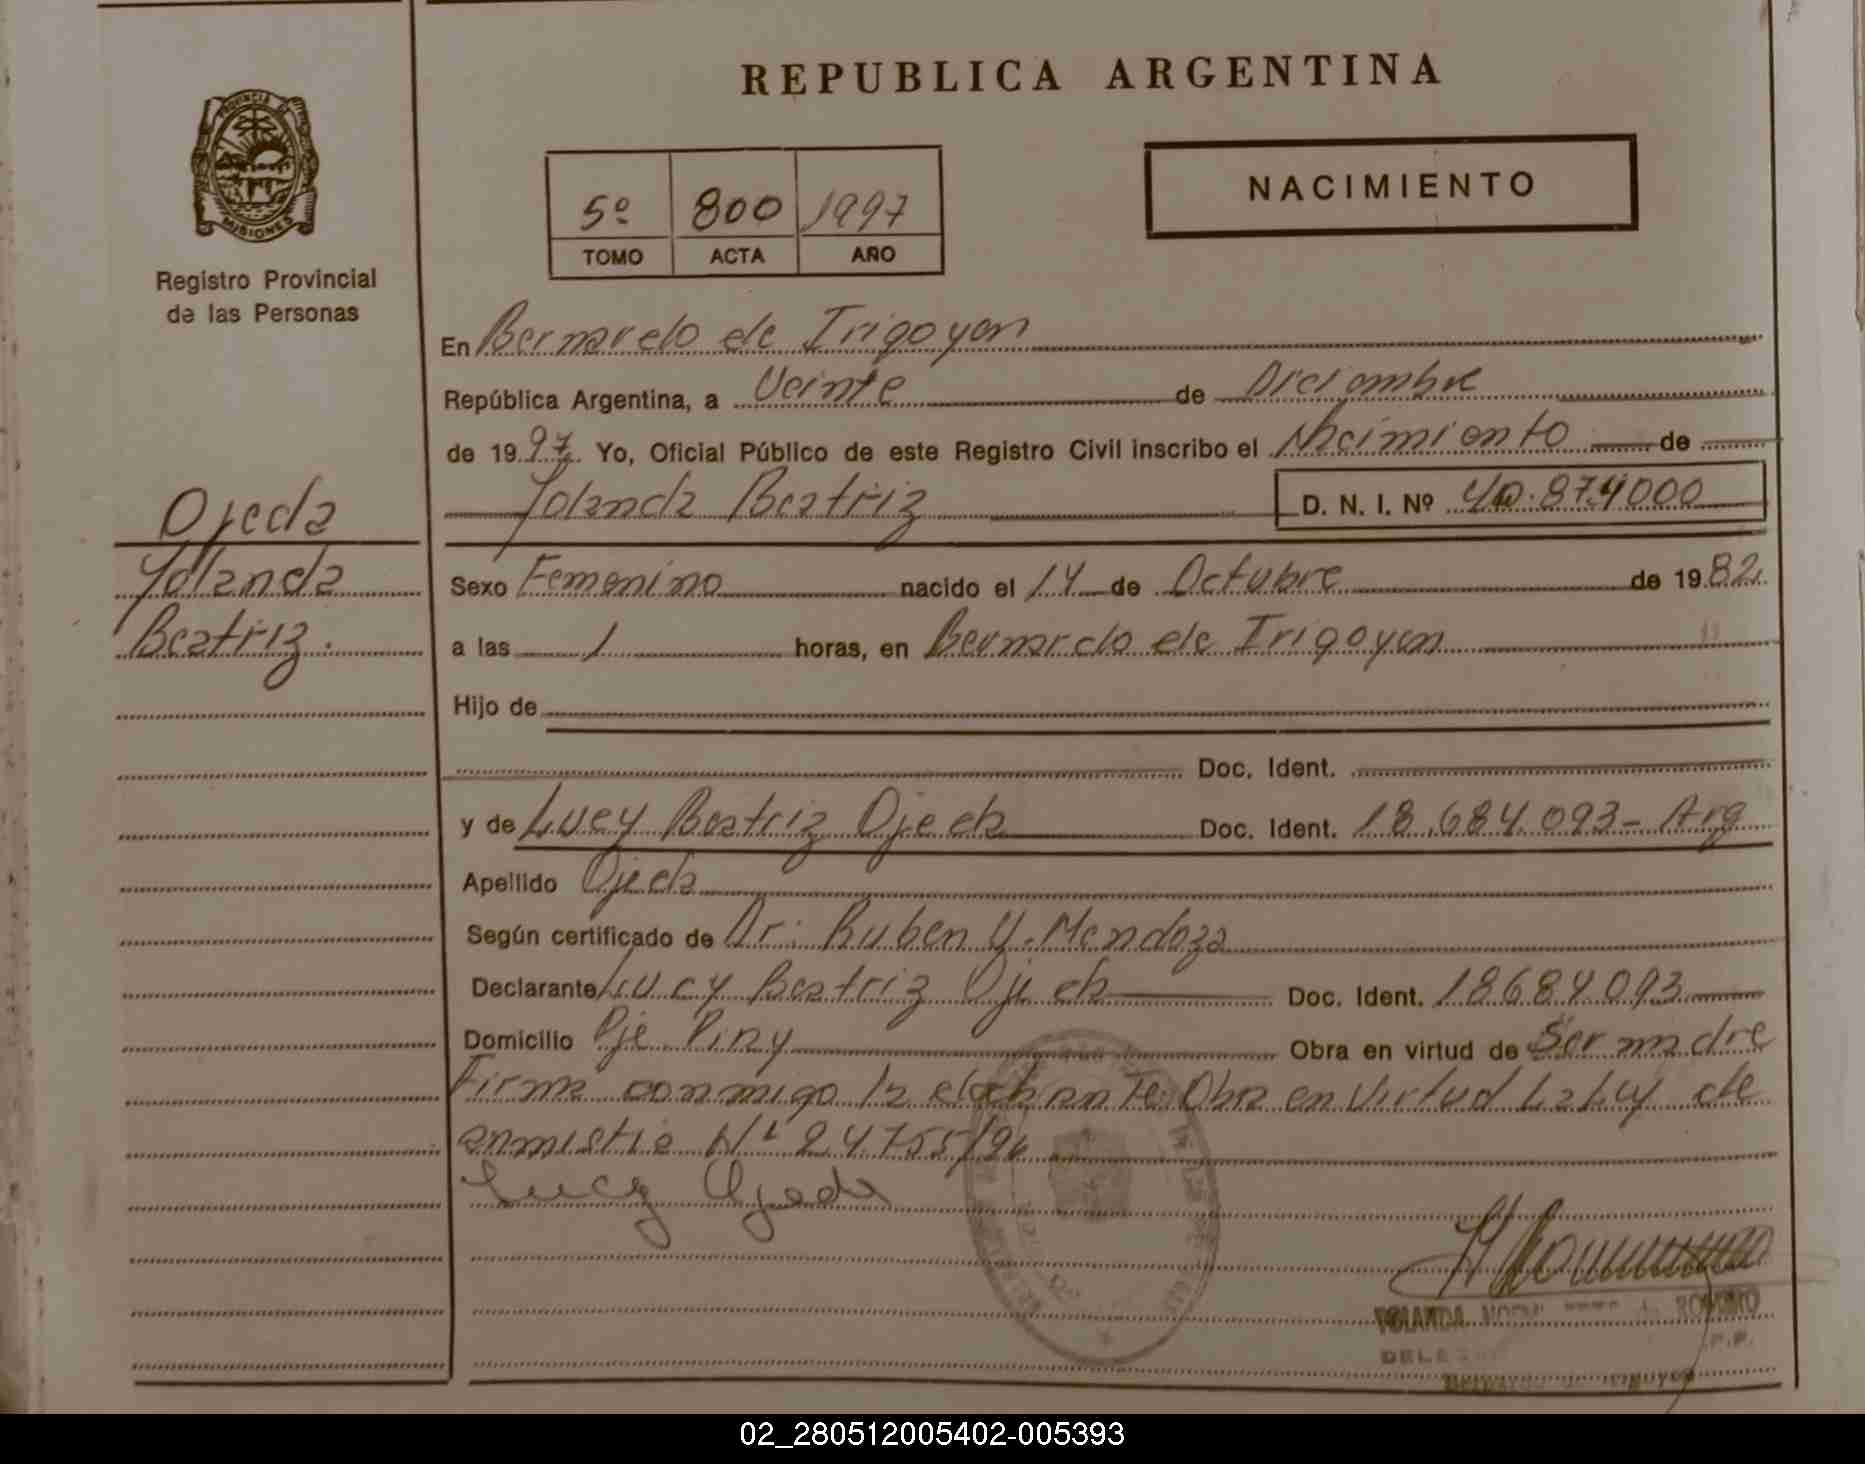 REPUBLICA ARGENTINA
PROVINCIA DE
MISIONES
Registro Provincial
de las Personas
5º 800 1997
TOMO ACTA AÑO
NACIMIENTO
Ojeda
Yolanda
Beatriz.
En Bernardo de Irigoyen
República Argentina, a Veinte de Diciembre
de 1997. Yo, Oficial Público de este Registro Civil inscribo el Nacimiento de
Yolanda Beatriz D. N. I. Nº 40.874000
Sexo Femenino nacido el 14 de Octubre de 1982.
a las 1 horas, en Bernardo de Irigoyen
Hijo de
Doc. Ident.
y de Lucy Beatriz Ojeda Doc. Ident. 18.684.093- Arg
Apellido Ojeda
Según certificado de Dr: Ruben Mendoza
Declarante Lucy Beatriz Ojeda Doc. Ident. 18684093
Domicilio Pje Piny Obra en virtud de Ser madre
Firma conmigo la declarante Obra en Virtud La Ley de
anmistia Nº 24755/96
Lucy Ojeda
YOLANDA
Bernardo de Irigoyen
02_280512005402-005393